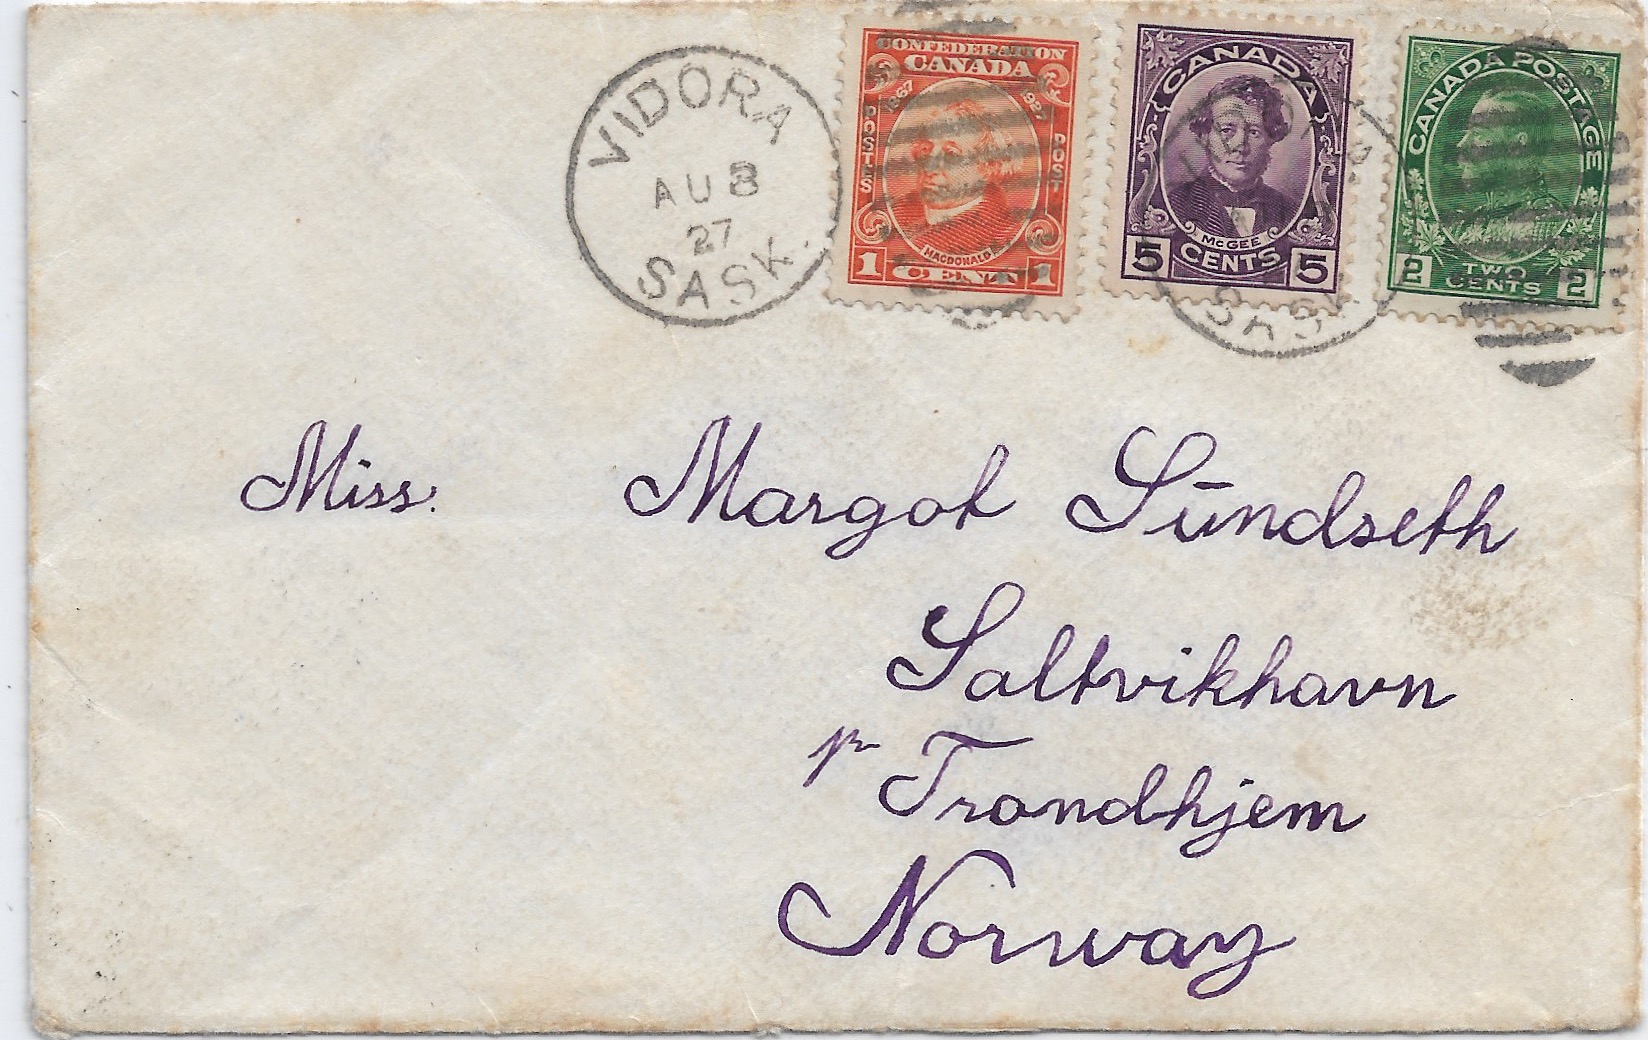 VIDORA
AU 8
27
SASK.
CONFEDERATION
CANADA
1867 1927
POSTES POST
MACDONALD
1 CENT 1
CANADA
McGEE
5 CENTS 5
CANADA POSTAGE
2 TWO CENTS 2
Miss. Margot Sūndseth
Saltvikhavn
pr Trondhjem
Norway